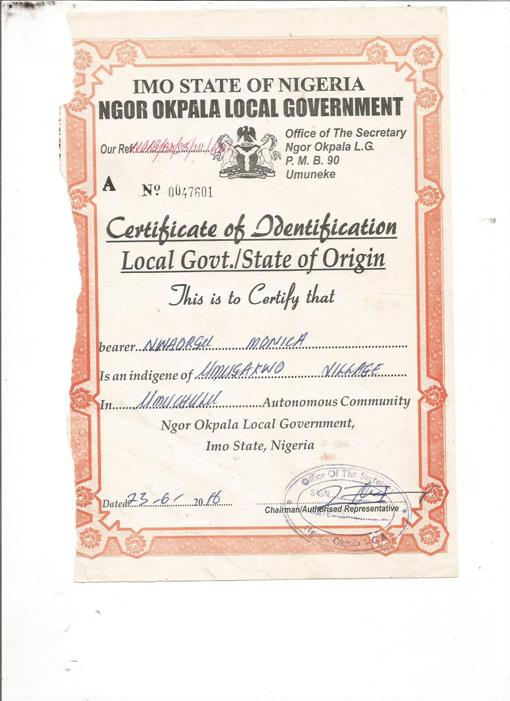 IMO STATE OF NIGERIA
NGOR OKPALA LOCAL GOVERNMENT
Our Ref
Office of The Secretary
Ngor Okpala L.G.
P. M. B. 90
Umuneke
A
No 0047601
Certificate of Identification
Local Govt./State of Origin
This is to Certify that
bearer NWAORGU MONICA
Is an indigene of UMUGAKWO VILLAGE
In UMUCHULU Autonomous Community
Ngor Okpala Local Government,
Imo State, Nigeria
Office Of The Secretary
SIGN
DATE
Dated 23-6- 2016
Chairman/Authorised Representative
Ngor Okpala LGA